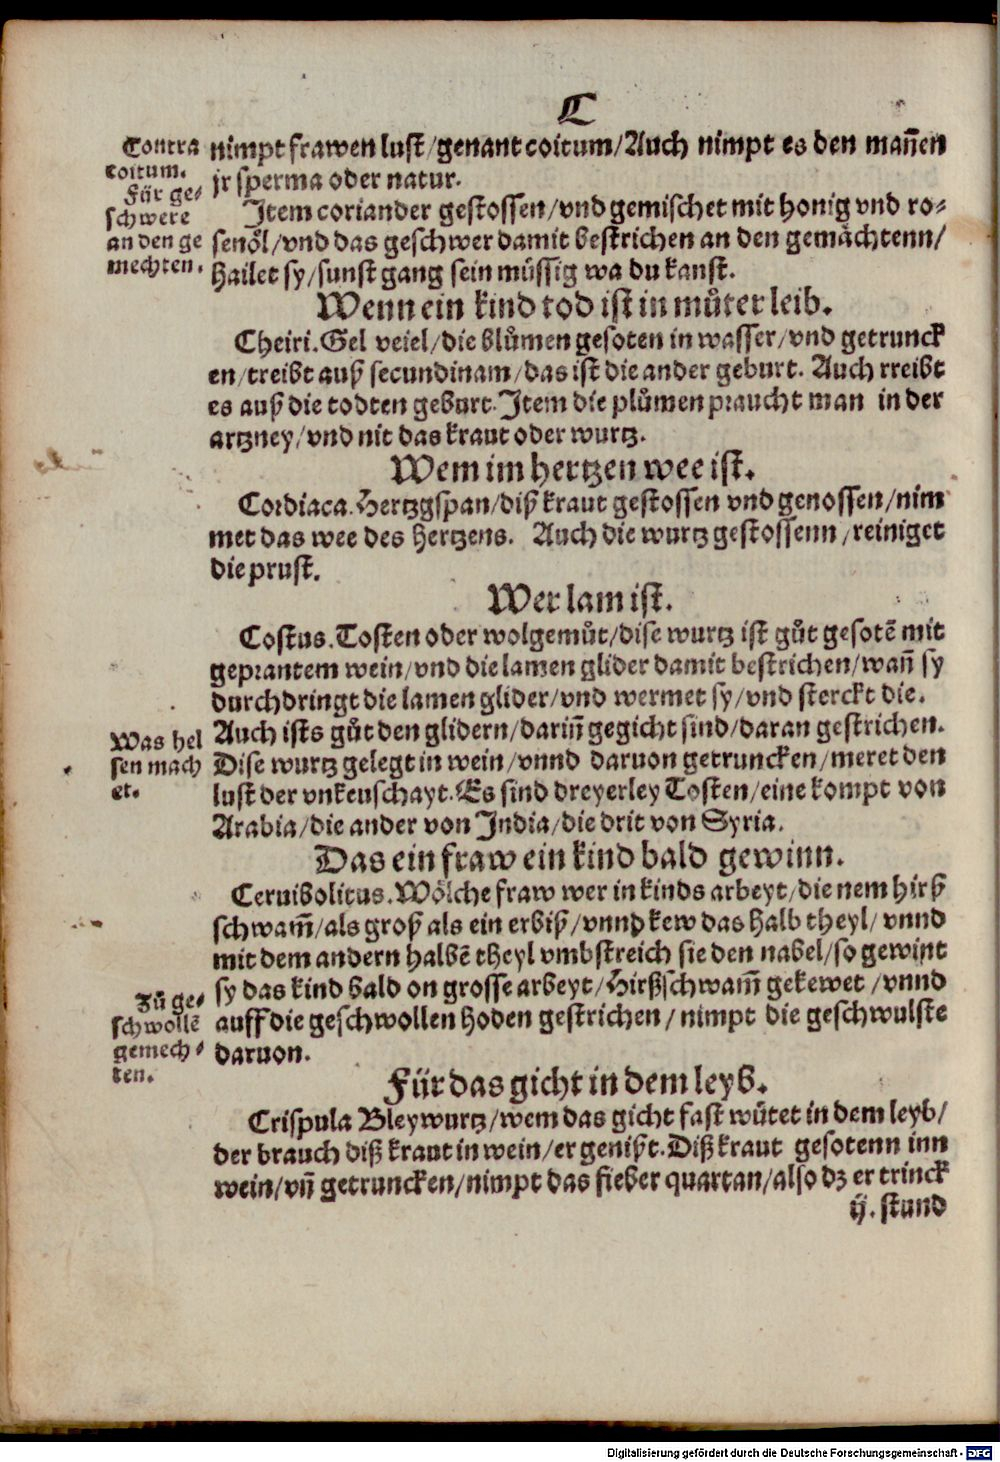 C
Contra
coitum.
Für ge⸗
schwere
an den ge
mechten.
nimpt frawen lust/genant coitum/Auch nimpt es den mañen
jr sperma oder natur.
Item coriander gestossen/vnd gemischet mit honig vnd ro⸗
senöl/vnd das geschwer damit bestrichen an den gemächtenn/
Hailet sy/sunst gang sein müssig wa du kanst.
Wenn ein kind tod ist in můter leib.
Cheiri. Gel veiel/die blůmen gesoten in wasser/vnd getrunck
en/treibt auß secundinam/das ist die ander geburt. Auch rreibt
es auß die todten geburt. Item die plůmen praucht man in der
artzney/vnd nit das kraut oder wurtz.
Wem im hertzen wee ist.
Cordiaca. Hertzgspan/diß kraut gestossen vnd genossen/nim
met das wee des hertzens. Auch die wurtz gestossenn/reiniget
die prust.
Wer lam ist.
Costus. Tosten oder wolgemůt/dise wurtz ist gůt gesotē mit
geprantem wein/vnd die lamen glider damit bestrichen/wañ sy
durchdringt die lamen glider/vnd wermet sy/vnd sterckt die.
Auch ists gůt den glidern/dariñ gegicht sind/daran gestrichen.
Was hel
sen mach
et.
Dise wurtz gelegt in wein/vnnd daruon getruncken/meret den
lust der vnkeuschayt. Es sind dreyerley Tosten/eine kompt von
Arabia/die ander von India/die drit von Syria.
Das ein fraw ein kind bald gewinn.
Ceruibolitus. Wölche fraw wer in kinds arbeyt/die nem hirß
schwam̄/als groß als ein erbiß/vnnd kew das halb theyl/vnnd
mit dem andern halbē theyl vmbstreich sie den nabel/so gewint
sy das kind bald on grosse arbeyt/Hirßschwam̄ gekewet/vnnd
Zů ge⸗
schwollē
gemech⸗
ten.
auff die geschwollen hoden gestrichen/nimpt die geschwulste
daruon.
Für das gicht in dem leyb.
Crispula Bleywurtz/wem das gicht fast wütet in dem leyb/
der brauch diß kraut in wein/er genißt. Diß kraut gesotenn inn
wein/vñ getruncken/nimpt das fieber quartan/also dz er trinck
ij. stund
Digitalisierung gefördert durch die Deutsche Forschungsgemeinschaft - DFG